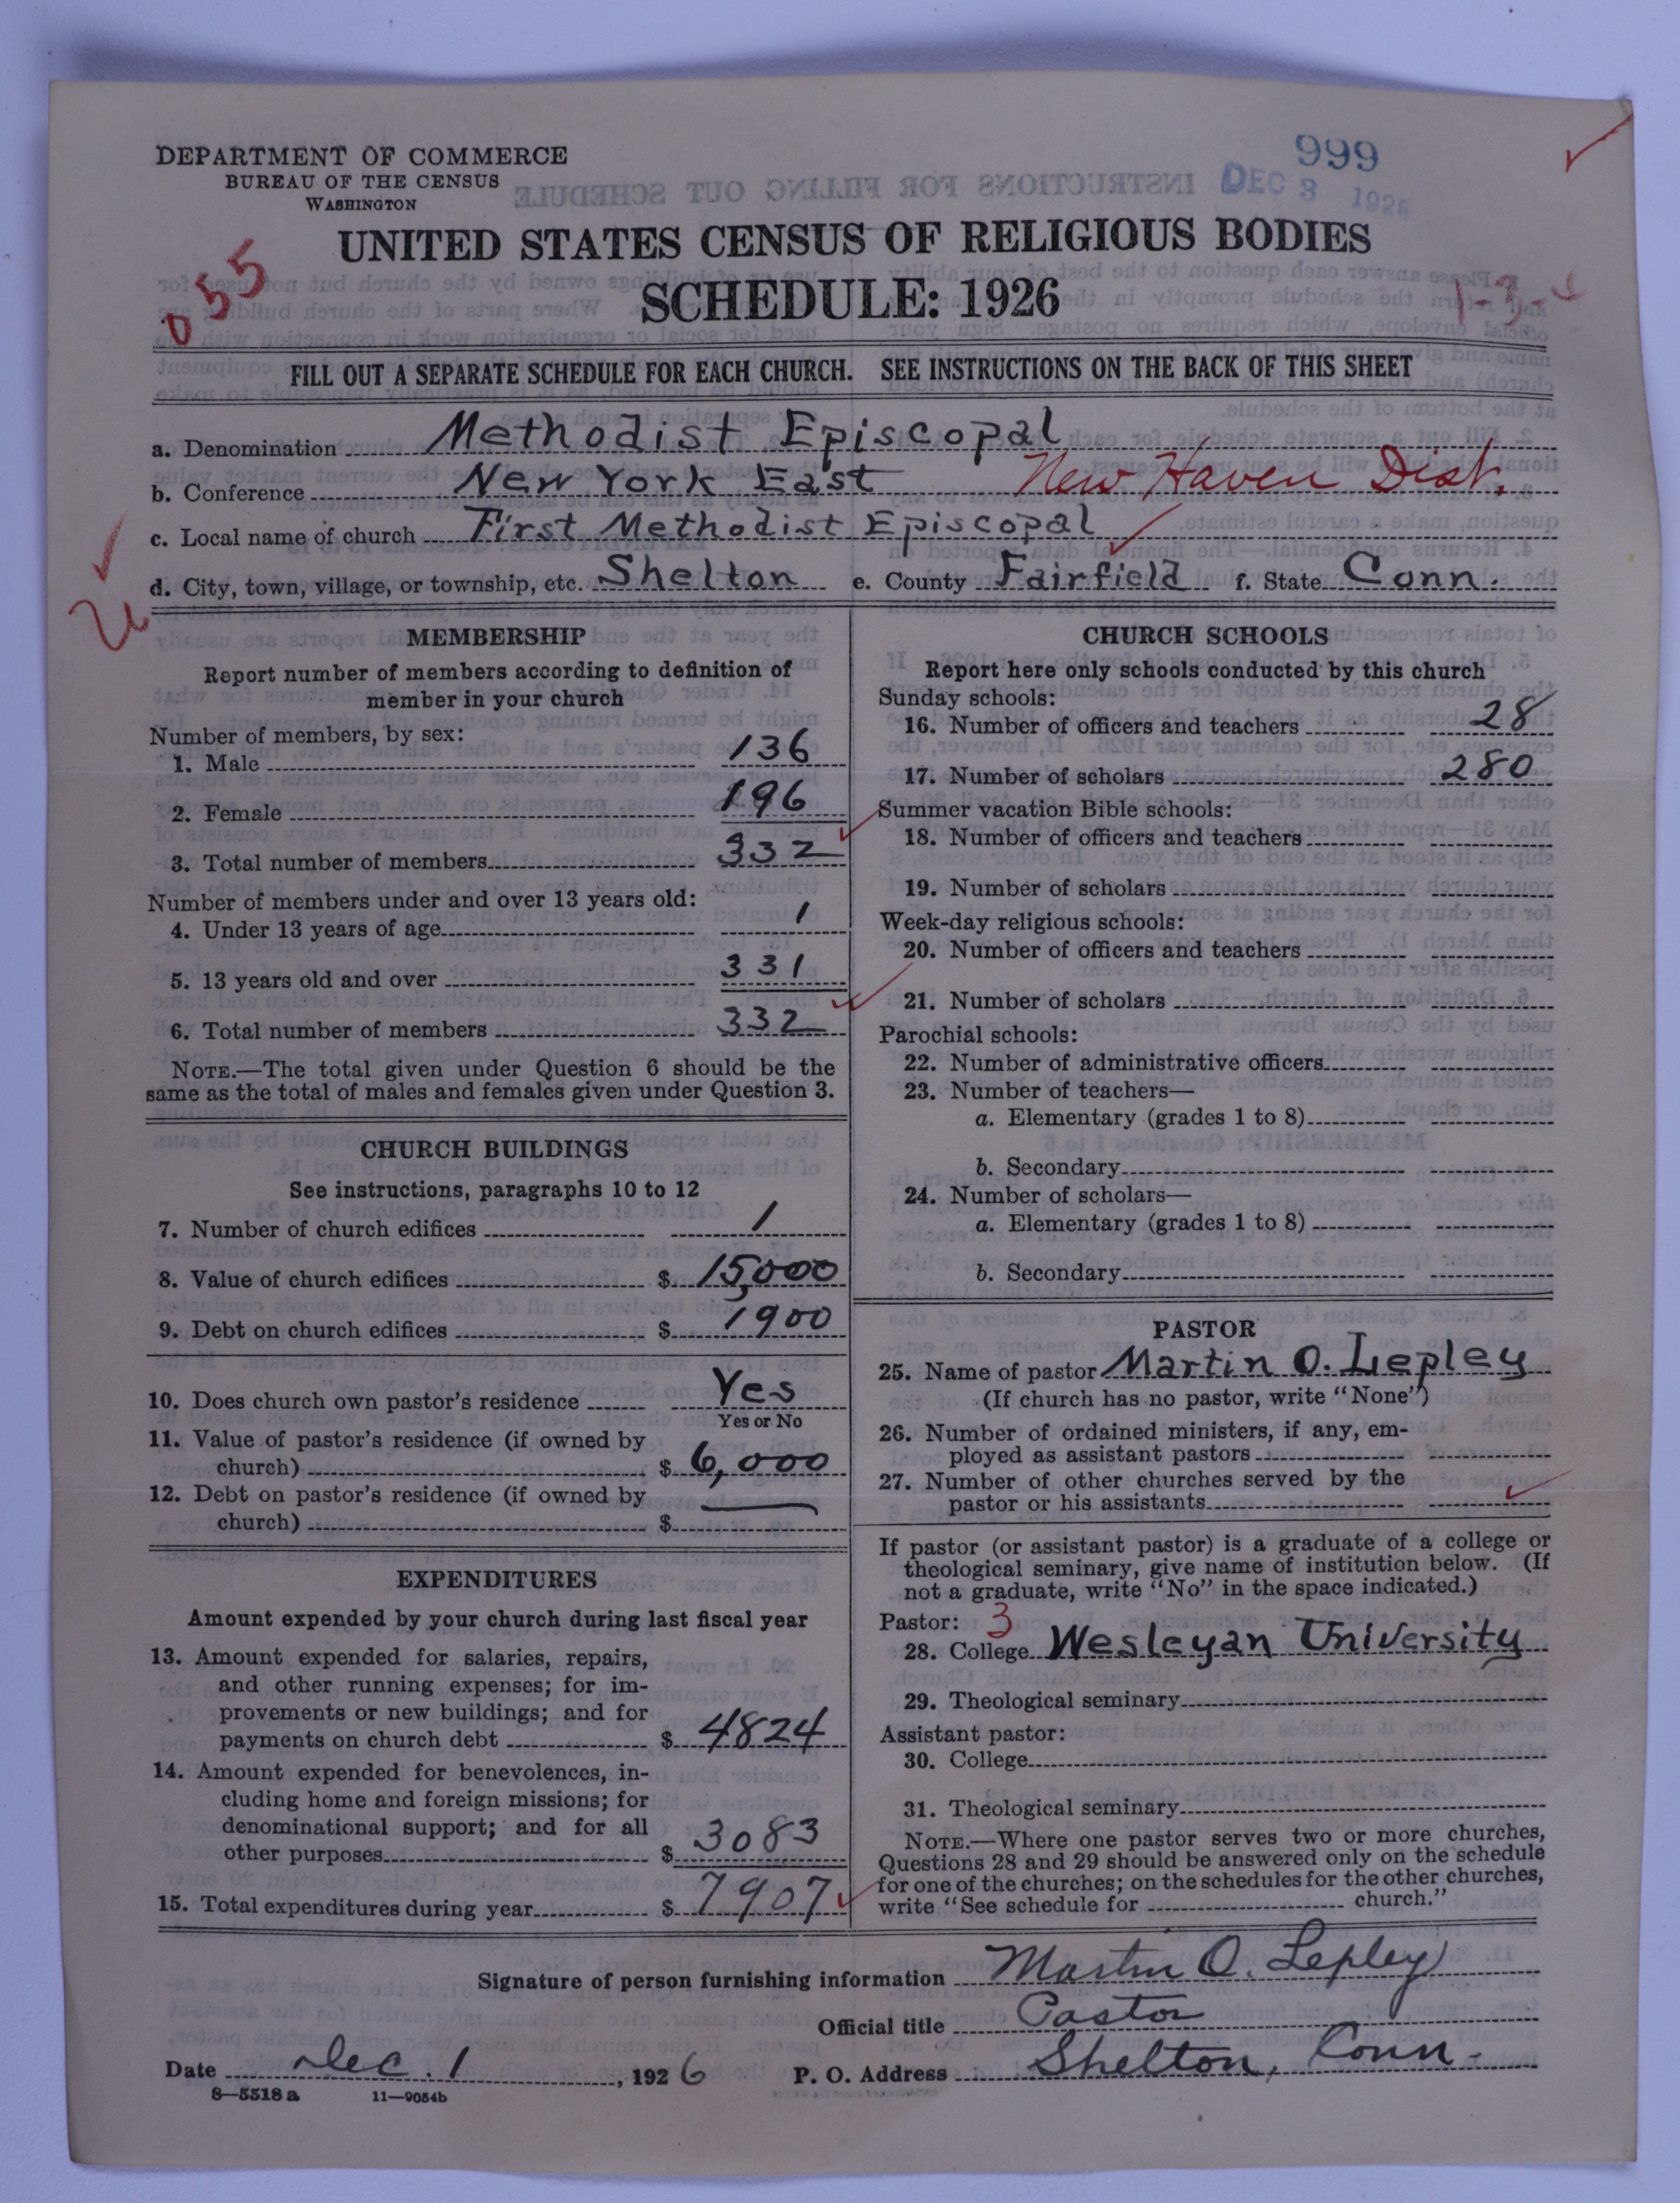 999
DEPARTMENT OF COMMERCE
BUREAU OF THE CENSUS
WASHINGTON
DEC 3 1926
UNITED STATES CENSUS OF RELIGIOUS BODIES
055
SCHEDULE: 1926
FILL OUT A SEPARATE SCHEDULE FOR EACH CHURCH. SEE INSTRUCTIONS ON THE BACK OF THIS SHEET
a. Denomination Methodist Episcopal
b. Conference New York East New Haven Dist.
c. Local name of church First Methodist Episcopal
d. City, town, village, or township, etc. Shelton e. County Fairfield f. State Conn.
MEMBERSHIP
Report number of members according to definition of
member in your church
Number of members, by sex:
1. Male 136
2. Female 196
3. Total number of members 332
Number of members under and over 13 years old:
4. Under 13 years of age 1
5. 13 years old and over 331
6. Total number of members 332
NOTE.—The total given under Question 6 should be the
same as the total of males and females given under Question 3.
CHURCH BUILDINGS
See instructions, paragraphs 10 to 12
7. Number of church edifices 1
8. Value of church edifices $ 15,000
9. Debt on church edifices $ 1900
10. Does church own pastor's residence Yes
Yes or No
11. Value of pastor's residence (if owned by
church) $ 6,000
12. Debt on pastor's residence (if owned by
church) $ —
EXPENDITURES
Amount expended by your church during last fiscal year
13. Amount expended for salaries, repairs,
and other running expenses; for im-
provements or new buildings; and for
payments on church debt $ 4824
14. Amount expended for benevolences, in-
cluding home and foreign missions; for
denominational support; and for all
other purposes $ 3083
15. Total expenditures during year $ 7907
CHURCH SCHOOLS
Report here only schools conducted by this church
Sunday schools:
16. Number of officers and teachers 28
17. Number of scholars 280
Summer vacation Bible schools:
18. Number of officers and teachers
19. Number of scholars
Week-day religious schools:
20. Number of officers and teachers
21. Number of scholars
Parochial schools:
22. Number of administrative officers
23. Number of teachers—
a. Elementary (grades 1 to 8)
b. Secondary
24. Number of scholars—
a. Elementary (grades 1 to 8)
b. Secondary
PASTOR
25. Name of pastor Martin O. Lepley
(If church has no pastor, write "None")
26. Number of ordained ministers, if any, em-
ployed as assistant pastors
27. Number of other churches served by the
pastor or his assistants
If pastor (or assistant pastor) is a graduate of a college or
theological seminary, give name of institution below. (If
not a graduate, write "No" in the space indicated.)
Pastor: 3
28. College Wesleyan University
29. Theological seminary
Assistant pastor:
30. College
31. Theological seminary
NOTE.—Where one pastor serves two or more churches,
Questions 28 and 29 should be answered only on the schedule
for one of the churches; on the schedules for the other churches,
write "See schedule for church."
Signature of person furnishing information Martin O. Lepley
Official title Pastor
Date Dec. 1, 1926 P. O. Address Shelton, Conn.
8—5518 a 11—9054b